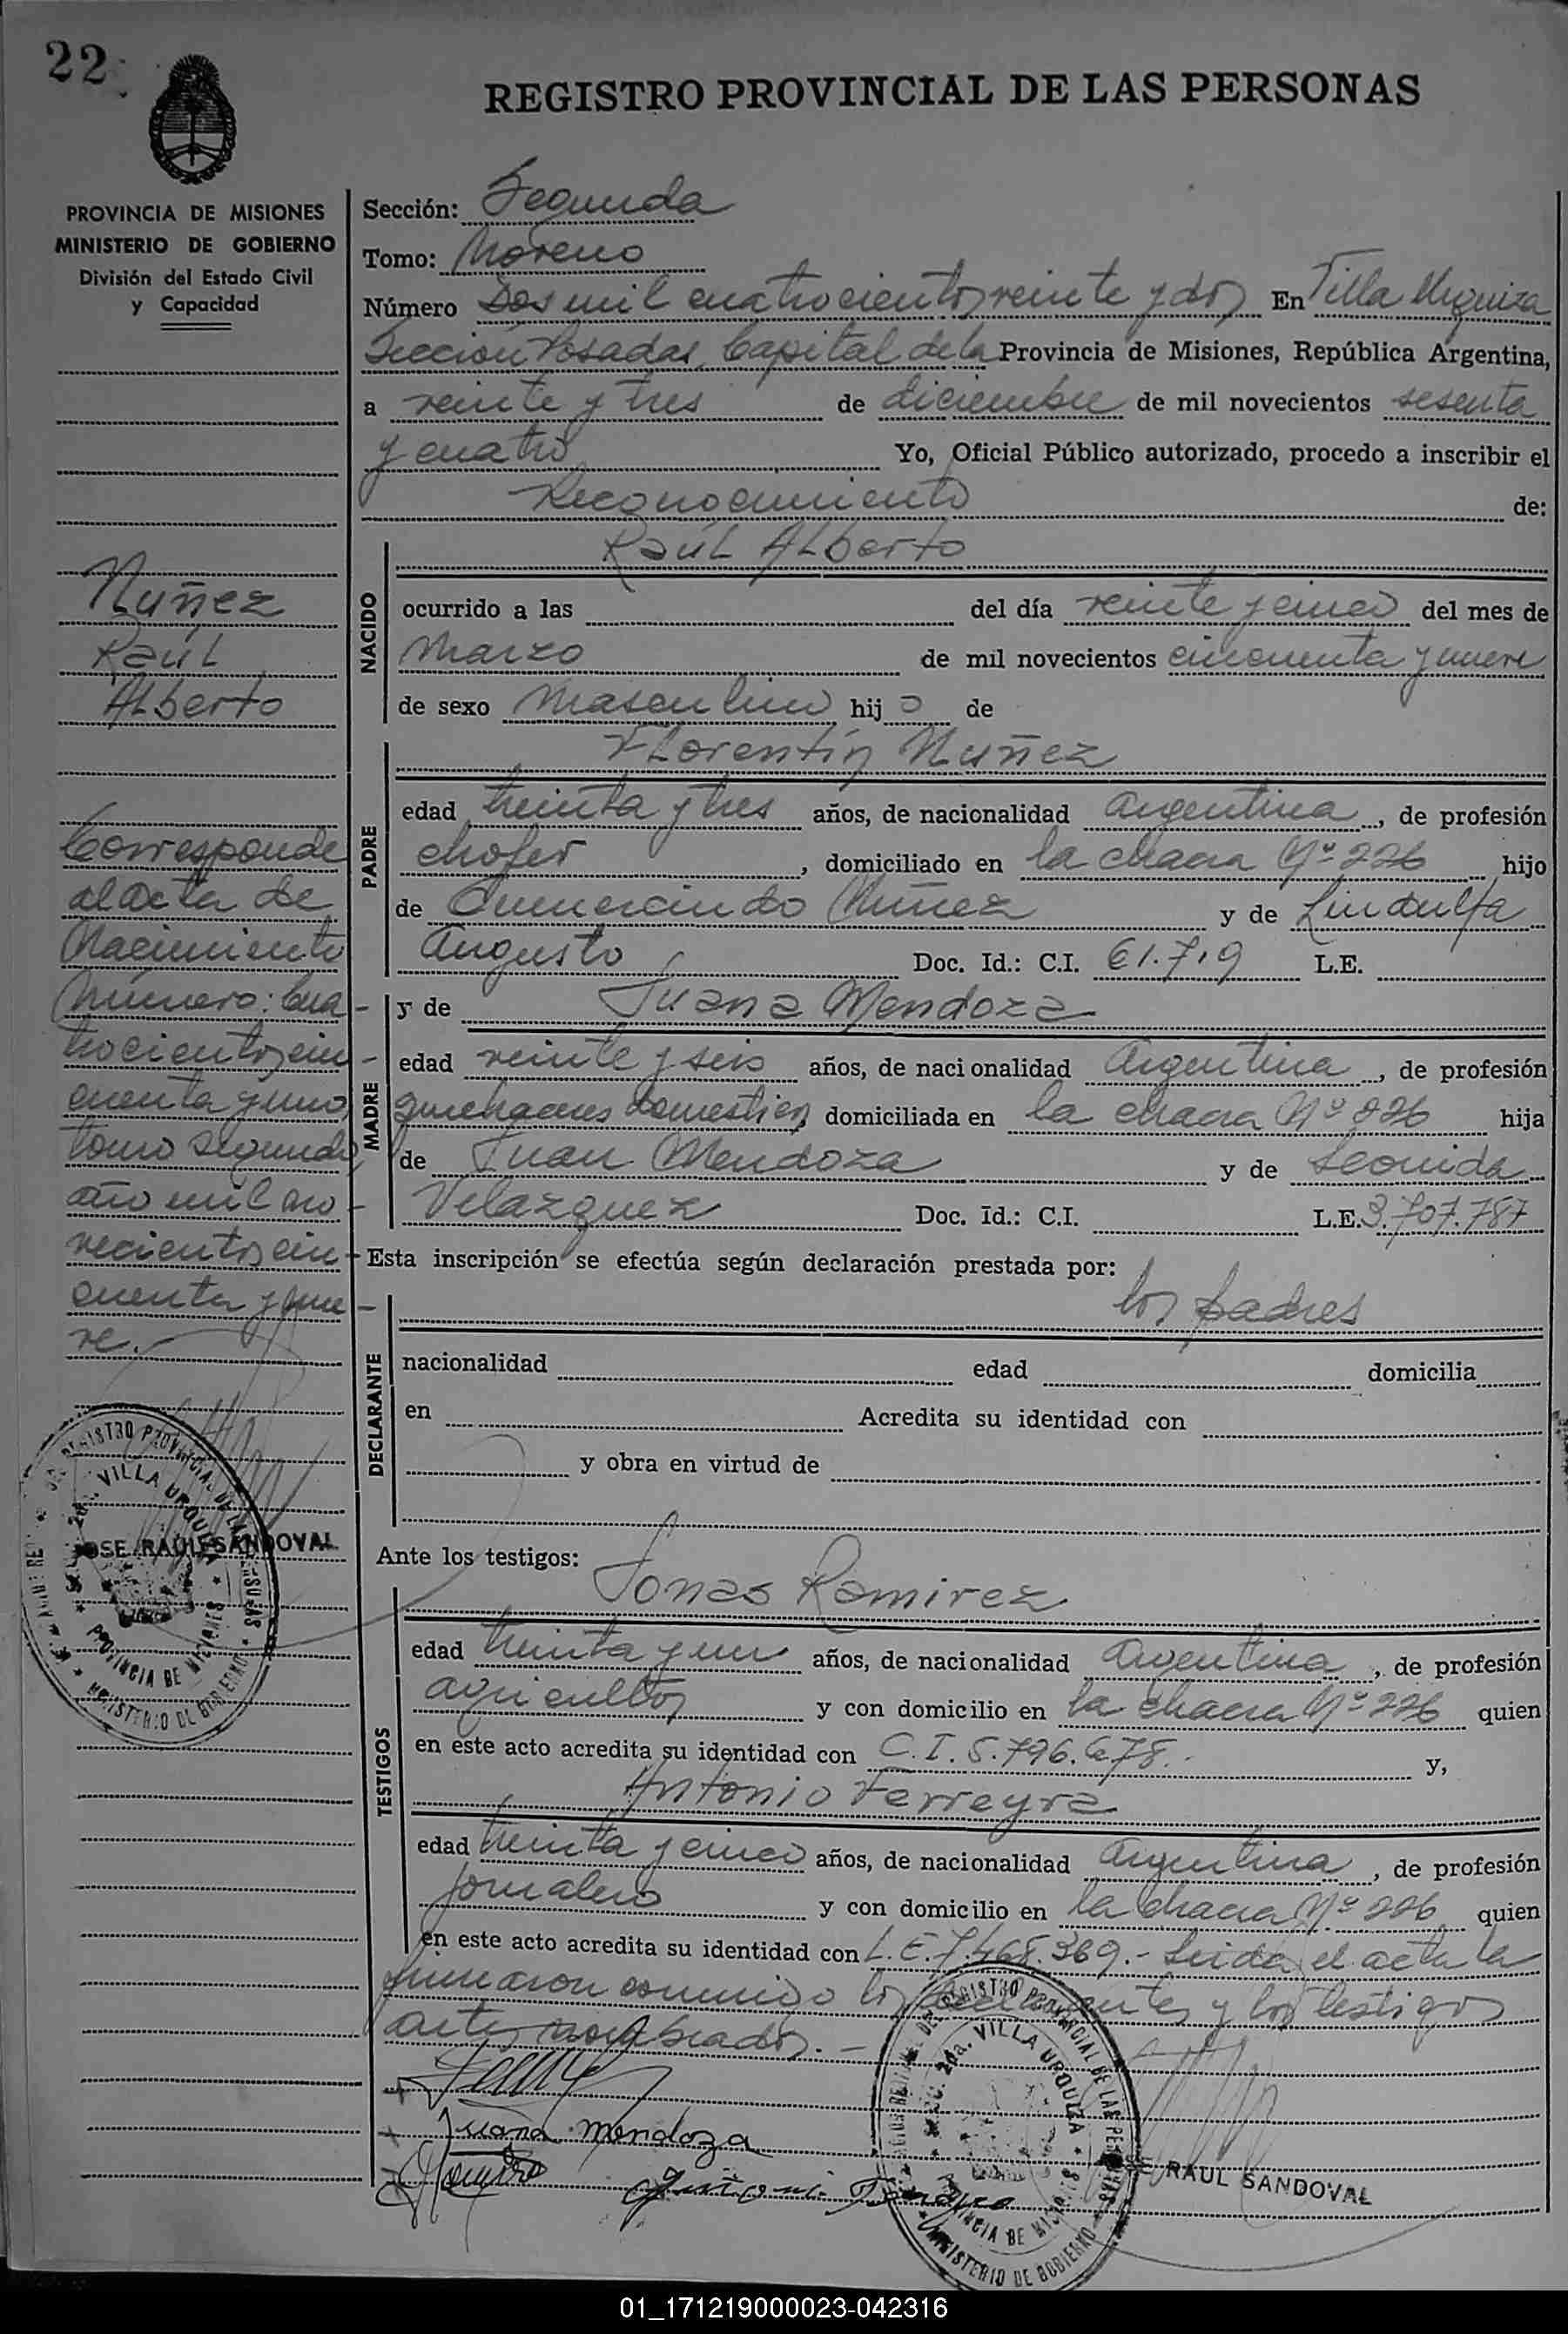 22
REGISTRO PROVINCIAL DE LAS PERSONAS
PROVINCIA DE MISIONES
MINISTERIO DE GOBIERNO
División del Estado Civil
y Capacidad
Sección: Segunda
Tomo: Moreno
Número Dos mil cuatrocientos veinte y dos En Villa Urquiza
Sección Posadas, Capital de la Provincia de Misiones, República Argentina,
a veinte y tres de diciembre de mil novecientos sesenta
y cuatro Yo, Oficial Público autorizado, procedo a inscribir el
Reconocimiento de:
Nuñez
Raúl
Alberto
Corresponde
al acta de
Nacimiento
Número: Cua-
trocientos cin-
cuenta y uno,
tomo segundo,
año mil no-
vecientos cin-
cuenta y nue-
ve.-
JOSE RAUL SANDOVAL
NACIDO
Raúl Alberto
ocurrido a las del día veinte y cinco del mes de
Marzo de mil novecientos cincuenta y nueve
de sexo Masculino hijo de
PADRE
Florentín Nuñez
edad treinta y tres años, de nacionalidad argentina, de profesión
chofer, domiciliado en la chacra Nº 226 hijo
de Gumercindo Nuñez y de Lindulfa
Augusto Doc. Id.: C.I. 61.719 L.E.
MADRE
y de Juana Mendoza
edad veinte y seis años, de nacionalidad Argentina, de profesión
quehaceres domesticos, domiciliada en la chacra Nº 226 hija
de Juan Mendoza y de Leonida
Velazquez Doc. Id.: C.I. L.E. 3.707.787
Esta inscripción se efectúa según declaración prestada por:
los padres
DECLARANTE
nacionalidad edad domicilia
en Acredita su identidad con
y obra en virtud de
Ante los testigos:
TESTIGOS
Jonas Ramirez
edad treinta y un años, de nacionalidad Argentina, de profesión
agricultor y con domicilio en la chacra Nº 226 quien
en este acto acredita su identidad con C.I. 5.796.678. y,
Antonio Ferreyra
edad treinta y cinco años, de nacionalidad Argentina, de profesión
jornalero y con domicilio en la chacra Nº 226 quien
en este acto acredita su identidad con L.E. 7.468.369.- Leida el acta la
firmaron conmigo los declarantes y los testigos
antes nombrados.-
Juana Mendoza
JOSE RAUL SANDOVAL
REGISTRO PROVINCIAL DE LAS PERSONAS
2da. VILLA URQUIZA
PROVINCIA DE MISIONES
MINISTERIO DE GOBIERNO
01_171219000023-042316